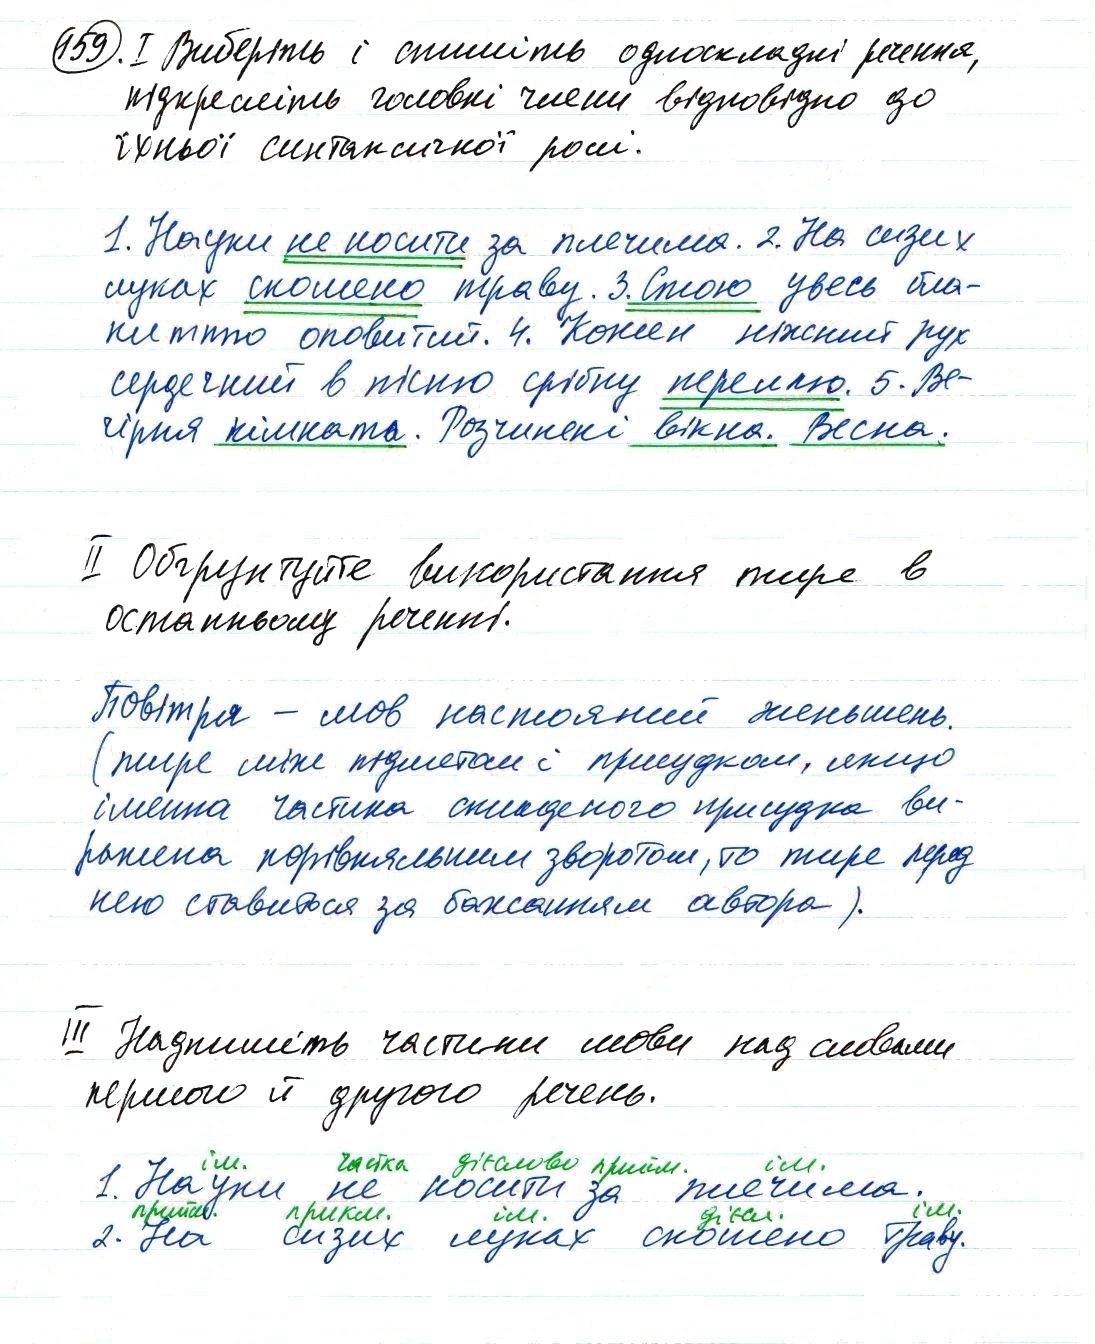 159. I Виберіть і спишіть односкладні речення,
підкресліть головні члени відповідно до
їхньої синтаксичної ролі.
1. Науки не носити за плечима. 2. На сизих
луках скошено траву. 3. Стою увесь бла-
китттю оповитий. 4. Кожен ніжний рух
сердечний в пісню срібну переллю. 5. Ве-
чірня кімната. Розчинені вікна. Весна.
II Обґрунтуйте використання тире в
останньому реченні.
Повітря – мов настояний женьшень.
(тире між підметом і присудком, якщо
іменна частина складеного присудка ви-
ражена порівняльним зворотом, то тире перед
нею ставиться за бажанням автора).
III Надпишіть частини мови над словами
першого й другого речень.
ім. частка дієслово прийм. ім.
1. Науки не носити за плечима.
прийм. прикм. ім. дієсл. ім.
2. На сизих луках скошено траву.